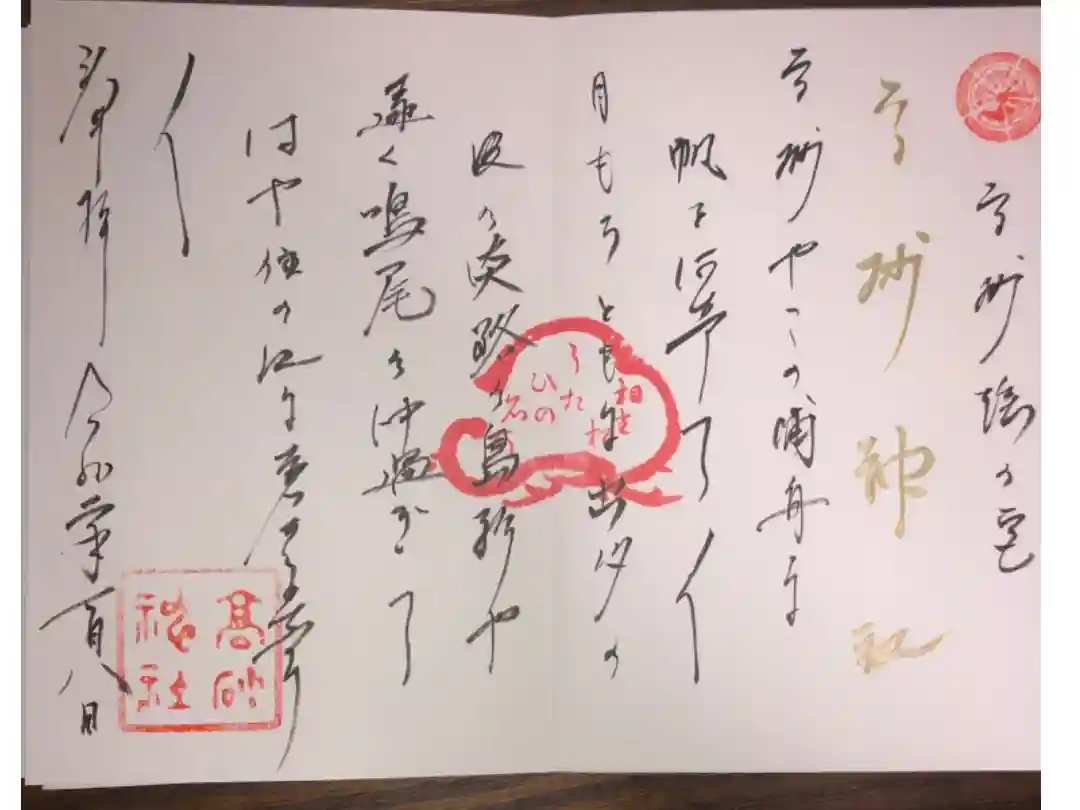 高砂
高砂神社
高砂やこの浦舟に
帆を阿希て〱
月もろともに出汐の
波の淡路の島影や
遠く鳴尾の沖過ぎて
はや住の江に着きに希り
〱
奉拝 令和 年一月八日
相生松
うた
ひの
高砂
神社